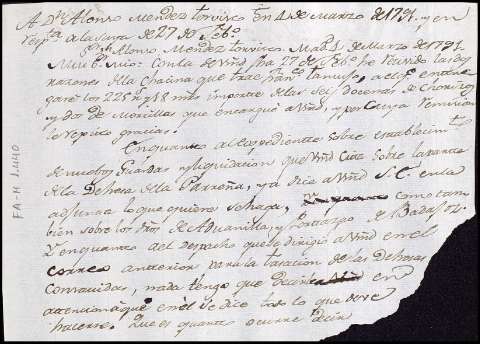 A Dn Alonso Mendez torvisco en 1 de Marzo de 1791. y en
resp.ta a la suya de 27 de Feb.o
Sr Dn Alonso Mendez torvisco. Mad.d 1. de Marzo de 1791
Mui S.r mio: Con la de Vmd fha 27 de Feb.o he recivido las dos
razones de la Chacina que trae Fran.co a el q.e entre
garé los 225 r.s y 18 mrs importe de las seis docenas de Chorizos
y dos de Morcillas que encargué a Vmd, y por cuya remision
le repito gracias.
Enquanto al expediente sobre establecim.to
de nuebos Guardas y liquidacion que Vmd cita sobre la
de la Dehesa de la ya dice a Vmd S.E. en la
adjunta lo que quiere se haga, como tam
bien sobre los de y Portazgo de Badajoz.
Y enquanto del despacho que se dirigió a Vmd en el
correo antterior para la tasacion de las Dehesas
nada tengo que decirle en
attencion a que en el se dice todo lo que deve
hacerse. Que es quanto ocurre decir
FA-H 1.440